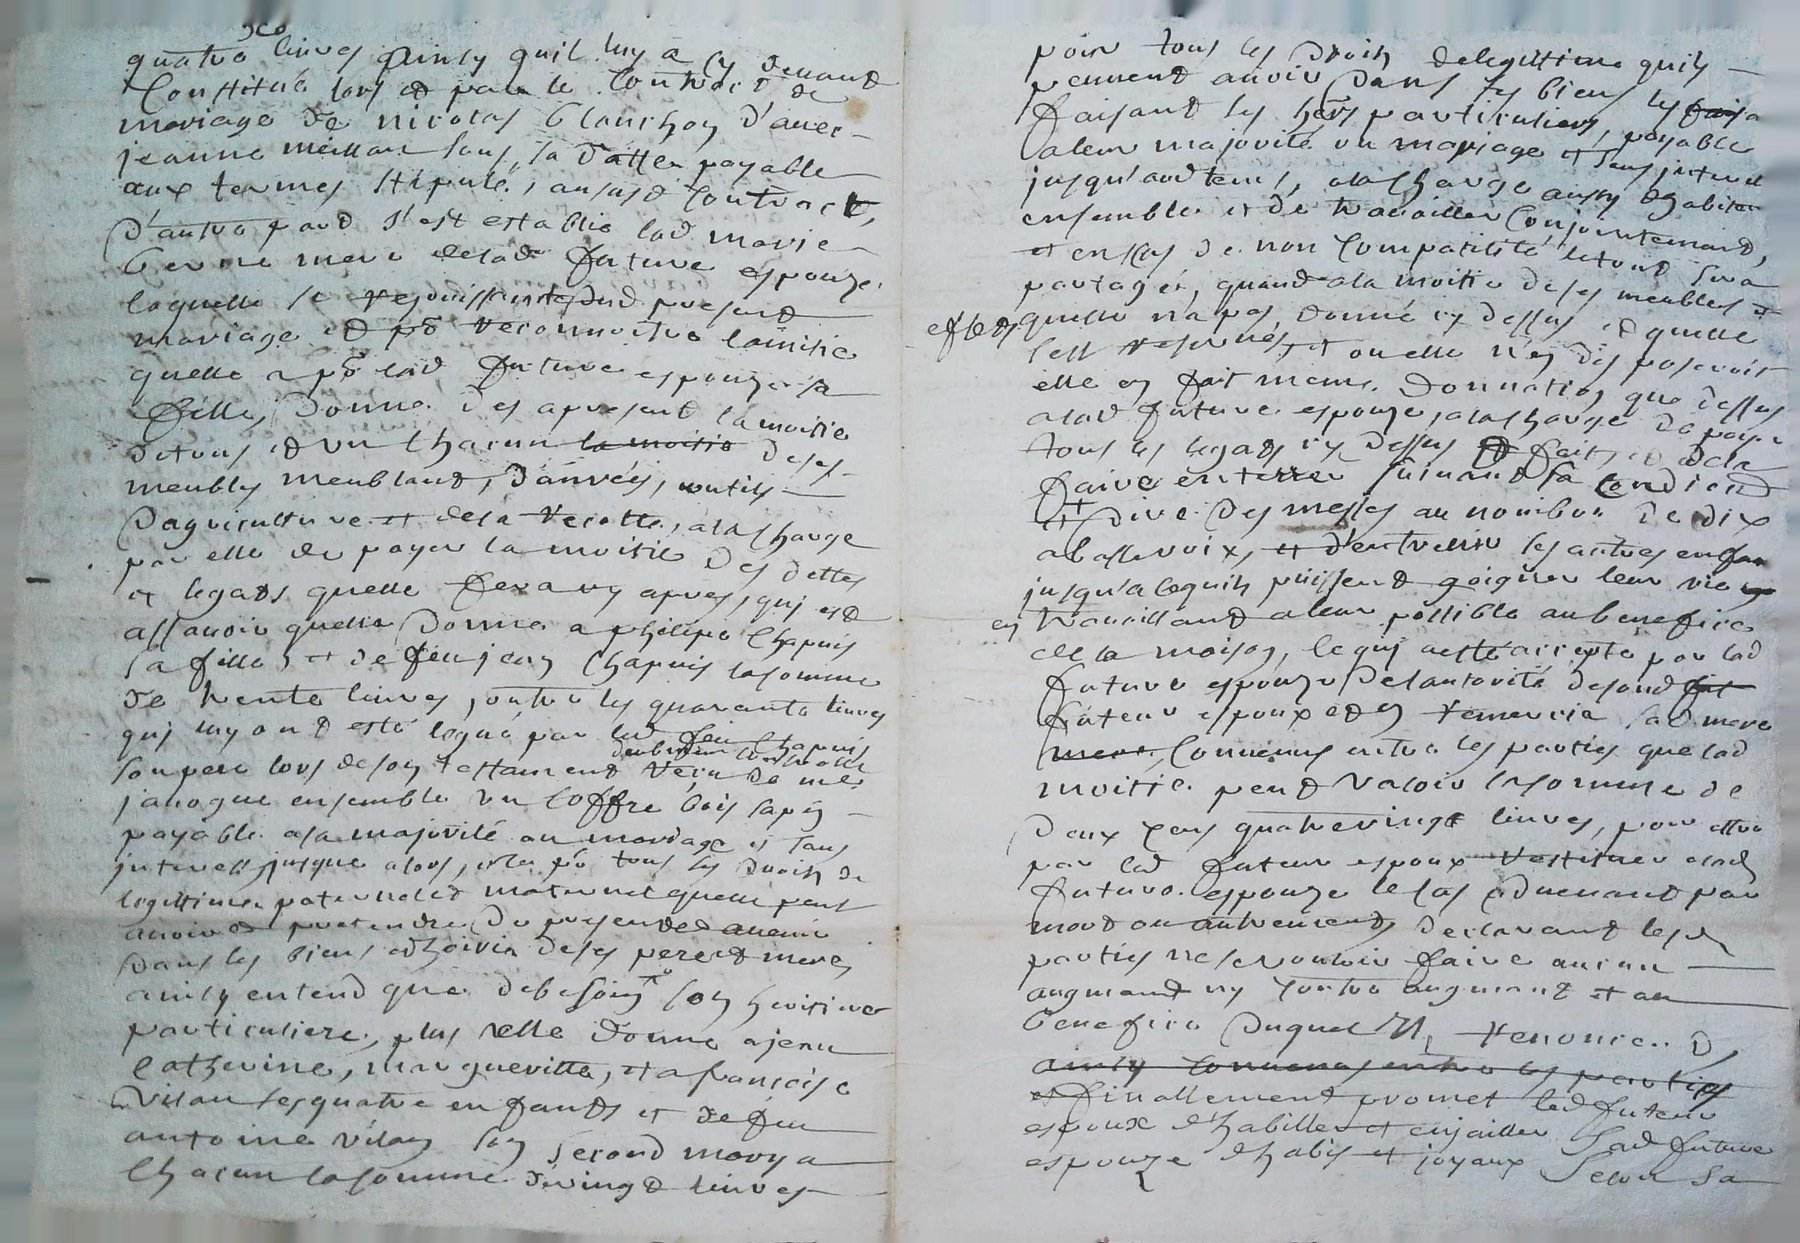 quatre livres ainsy quil luy a cy devand
Constitué lors et par le Contract de
mariage de nicolas Clauchoy d'avec
jeanne sous sa datte payable
aux termes stipulé, aususd Contract,
D'autre pard s'est establie lad marie
mere delad future espouze
laquelle se rejouissante dud presend
mariage et po reconnoitre lamitié
quelle a po lad future espouze sa
fille, Donne des apresent la moitié
detous et un Chacun la moitié deses
meubles meublant, danrées, outils
Dagriculture et dela recolte, alacharge
par elle de payer la moitié des dettes
et legats quelle fera cy apres, qui est
assavoir quelle donne a philipe Chapuis
sa fille, et de feu jean Chapuis lasomme
de trente livres, outre les quarante livres
qui luy ond esté legué par led feu Chapuis
son pere lors deson testament receu de me
janogue ensemble un Coffre bois sapin
payable asa majorité ou mariage et sans
interest jusque alors, et ce po tous les droits de
legittime paternel et maternel quelle peut
avoir et pretendre du presend et avenir
Dans les biens et hoirie deses pere et mere
ainsy entend que debesoin son heritiere
particuliere, plus elle donne a jean
Catherine, margueritte, et a francoise
vilan ses quatre enfants et de feu
antoine vilan son second mary a
Chacun lasomme de vingt livres
pour tous les Droits delegittime quils
peuvent avoir Dans ses biens les
faisant ses hers particuliers, payable
aleur majorité ou mariage et sans interest
jusqu'aud tems, alacharge aussy dhabiter
ensemble et de travailler Conjointement,
et en Cas de non Compatibilité letout sera
partagé, quand ala moitié deses meubles et
effets quelle na pas donné cy dessus et quelle
sest reservés, et ou elle n'en disposeroit
elle en fait meme Donnation que dessus
alad future espouze, alacharge de payer
tous les legats cy dessus faits, et dela
faire enterrer suivant sa Condiond
et dire des messes au nombre de dix
abasse voix, et d'entretenir les autres enfan
jusqu'a cequils puissend gaigner leur vie
en travaillant aleur possible aubenefice
de la maison, le qui a esté accepté par lad
future espouze Delautorité desond fut
futeur espoux et en remercie sad mere
mere, Convenus entre les parties que lad
moitié peud valoir lasomme de
Deux Cens quatrevingt livres, pour estre
par led futeur espoux restituer alad
future espouze le Cas advenant par
mort ou autrement, declarant lesd
parties ne se vouloir faire aucun
augmend ny Contre augmend et au
benefice Duquel Ils renonce..
ainsy Convenus entre les parties
et finallement promet led futeur
espoux d'habiller et enjailler lad future
espouze dhabis et joyaux selon sa